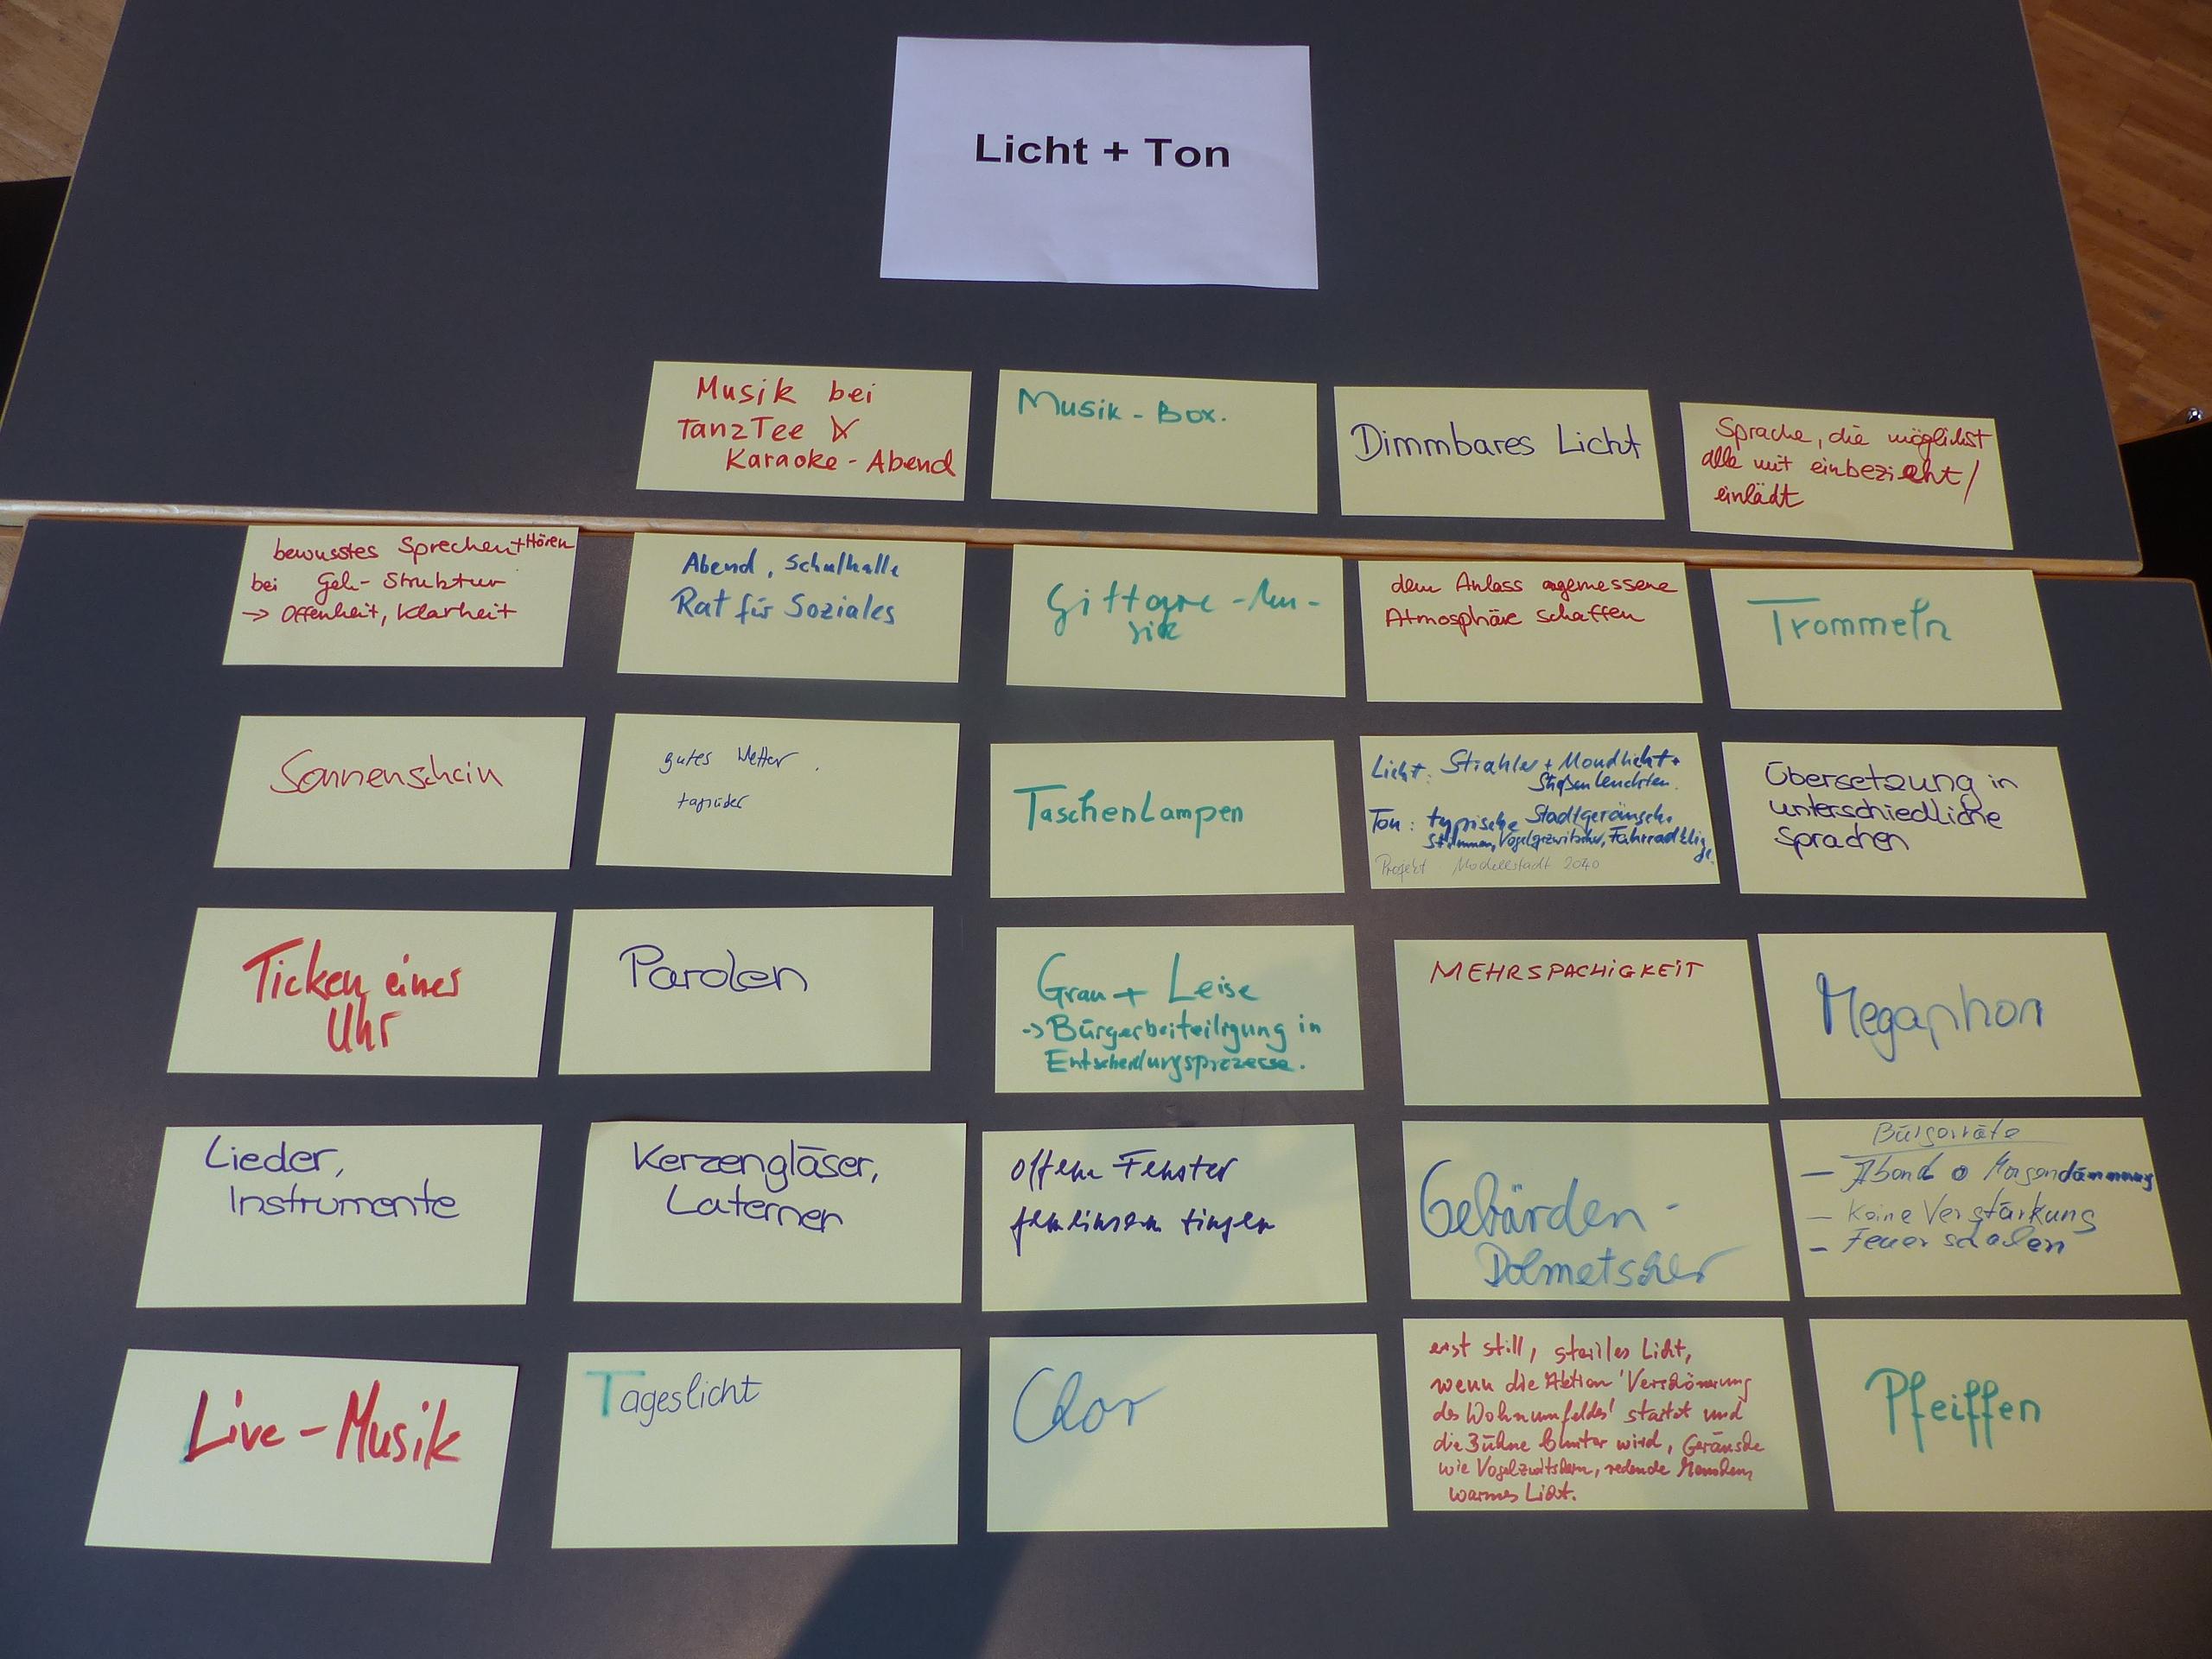 Licht + Ton
Musik bei
TanzTee &
Karaoke - Abend
Musik - Box.
Dimmbares Licht
Sprache, die möglichst
alle mit einbezieht /
einlädt
bewusstes Sprechen + Hören
bei Geh - Struktur
-> Offenheit, Klarheit
Abend, Schulhalle
Rat für Soziales
Gittare - Mu -
sik
dem Anlass angemessene
Atmosphäre schaffen
Trommeln
Sonnenschein
gutes Wetter.
tagsüber
TaschenLampen
Licht: Strahler + Mondlicht +
Straßenleuchten.
Ton: typische Stadtgeräusche
Stimmen, Vogelgezwitscher, Fahrradklin
gel
Projekt Modellstadt 2040
Übersetzung in
unterschiedliche
Sprachen
Ticken einer
Uhr
Parolen
Grau + Leise
-> Bürgerbeiteiligung in
Entscheidungsprozesse.
MEHRSPACHIGKEIT
Megaphon
Lieder,
Instrumente
Kerzengläser,
Laternen
offene Fenster
gemeinsam singen
Gebärden -
Dolmetscher
Bürgerräte
- Abend o Morgendämmung
- Keine Verstärkung
- Feuerschalen
Live - Musik
Tageslicht
Chor
erst still, steriles Licht,
wenn die Aktion 'Verschönerung
des Wohnumfeldes' startet und
die Bühne bunter wird, Geräusche
wie Vogelzwitschern, redende Menschen,
warmes Licht.
Pfeiffen